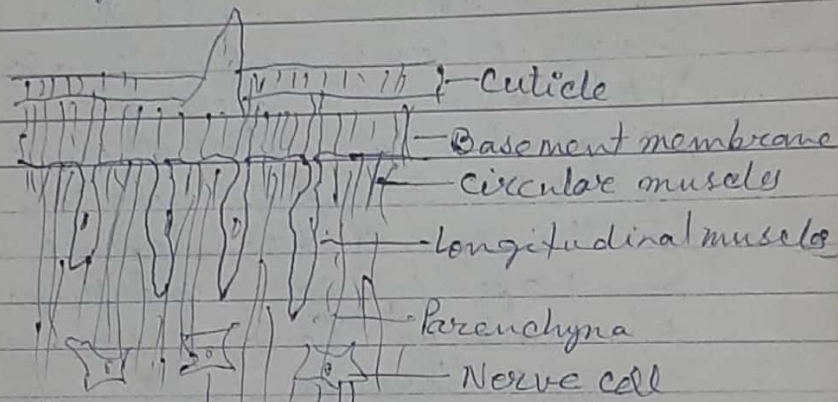 Cuticle
Basement membrane
Circular muscles
Longitudinal muscles
Parenchyna
Nerve cell